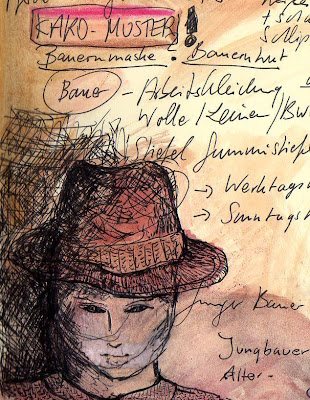 KAKO-MUSTER!
Bauernmaske: Bauernhut
Bauer - Arbeitskleidung
Wolle/Leinen/BW
Stiefel Gummistiefe
→ Werktags
→ Sonntags
Junger Bauer
Jungbauer
Alter-